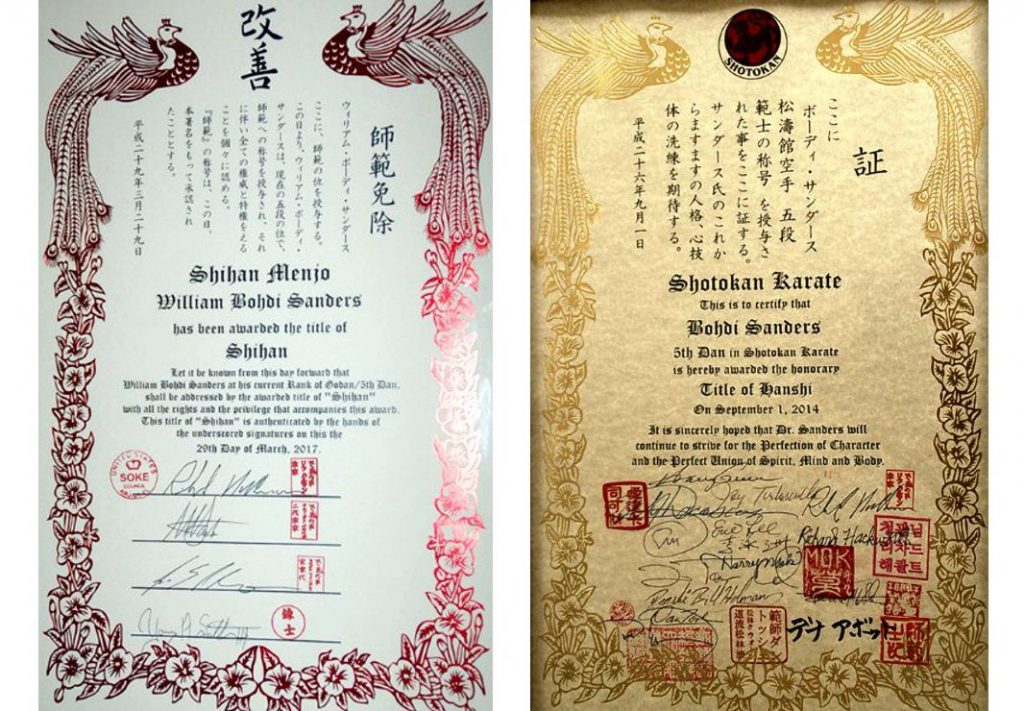 改善
師範免除
ウィリアム・ボーディ・サンダース
ここに、師範の位を授与する。
この日より、ウィリアム・ボーディ・
サンダースは、現在の五段の位で、
師範への称号を授与され、それ
に伴い全ての権威と特権をえる
ことを個々に認める。
『師範』の称号は、この日、
本署名をもって承認され
たこととする。
平成二十九年三月二十九日
Shihan Menjo
William Bohdi Sanders
has been awarded the title of
Shihan
Let it be known from this day forward that
William Bohdi Sanders at his current Rank of Godan/5th Dan,
shall be addressed by the awarded title of "Shihan"
with all the rights and the privilege that accompanies this award.
This title of "Shihan" is authenticated by the hands of
the underscored signatures on this the
29th Day of March, 2017.
UNITED STATES
SOKE
COUNCIL
錬士
SHOTOKAN
証
ここに
ボーディ・サンダース
松濤館空手 五段
範士の称号を授与さ
れた事をここに証する。
サンダース氏のこれか
らますますの人格、心技
体の洗練を期待する。
平成二十六年九月一日
Shotokan Karate
This is to certify that
Bohdi Sanders
5th Dan in Shotokan Karate
is hereby awarded the honorary
Title of Hanshi
On September 1, 2014
It is sincerely hoped that Dr. Sanders will
continue to strive for the Perfection of Character
and the Perfect Union of Spirit, Mind and Body.
Eric Lee
Harry Mok
MOK
デナ アボット